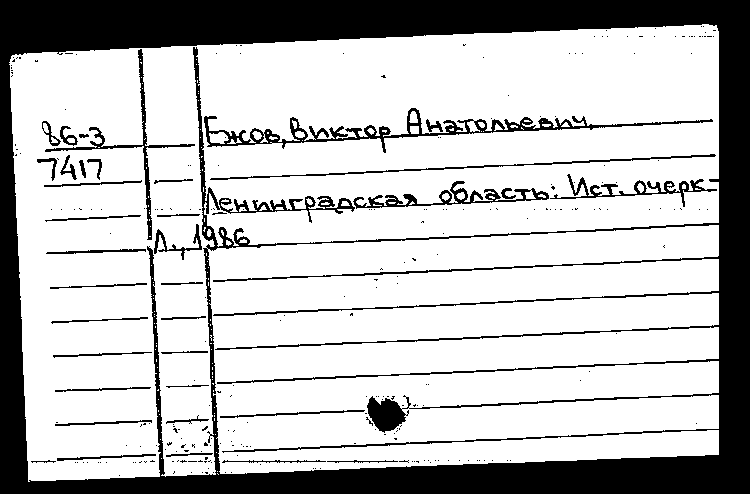 86-3 Ежов, Виктор Анатольевич.
7417
Ленинградская область: Ист. очерк.-
Л., 1986.